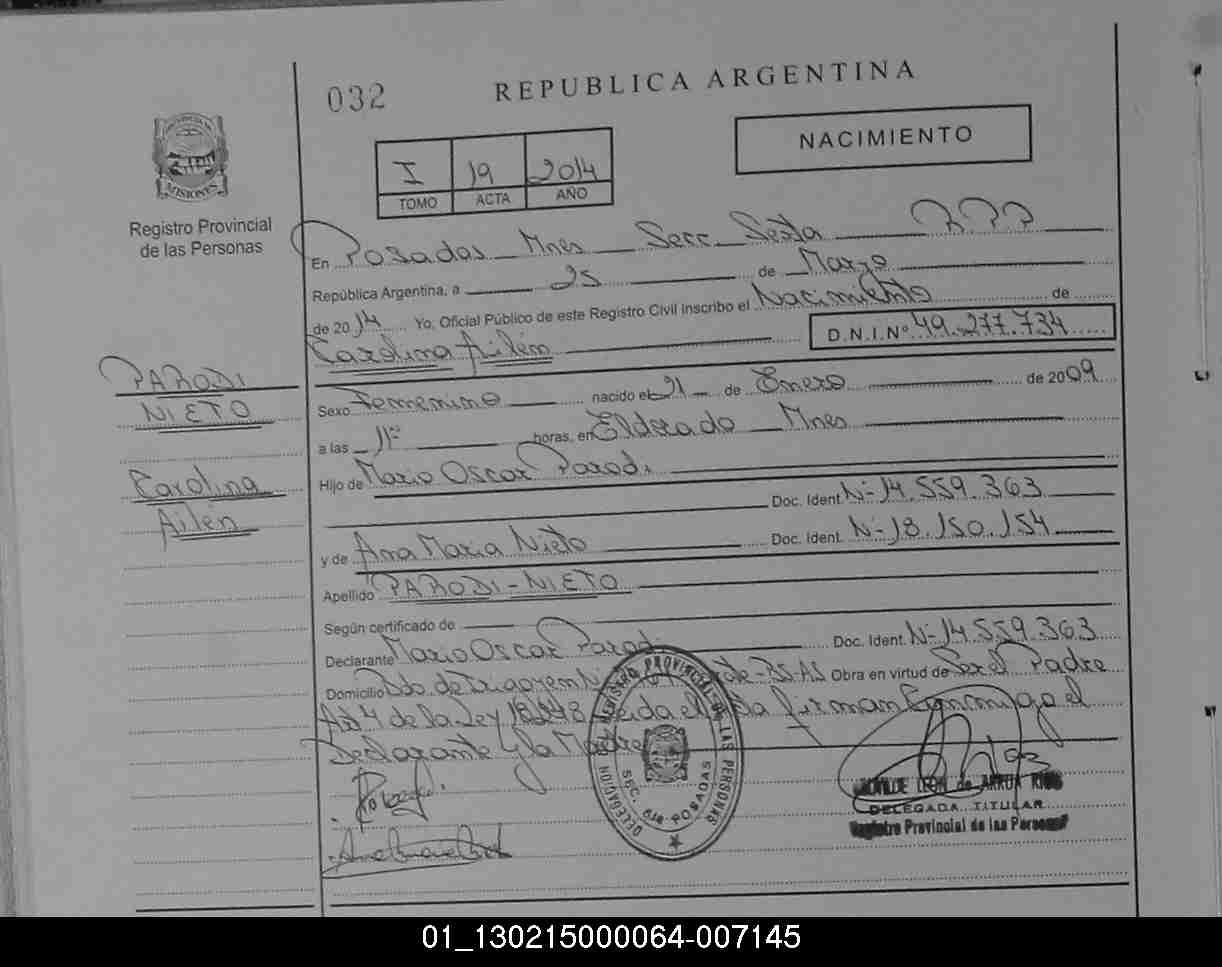 032
REPUBLICA ARGENTINA
NACIMIENTO
I 19 2014
TOMO ACTA AÑO
PROVINCIA DE
MISIONES
Registro Provincial
de las Personas
En Posadas Mnes Secc. Sexta R P P
República Argentina, a 25 de Marzo
de 2014 Yo, Oficial Público de este Registro Civil Inscribo el Nacimiento de
Carolina Ailén D.N.I.Nº 49.277.734
PARODI
NIETO
Carolina
Ailén
Sexo Femenino nacido el 21 de Enero de 2009
a las 11 horas, en Eldorado Mnes
Hijo de Mario Oscar Parodi
Doc. Ident. Nº 14.559.363
y de Ana Maria Nieto Doc. Ident. Nº 18.150.154
Apellido PARODI - NIETO
Según certificado de
Declarante Mario Oscar Parodi Doc. Ident. Nº 14.559.363
Domicilio Bdo. de Irigoyen - BS-AS Obra en virtud de Ser el Padre
Art 4 de la Ley 18248 Leida el firman conmigo el
Declarante y la Madre
DELEGACION REGISTRO PROVINCIAL DE LAS PERSONAS
SEC. 6ta - POSADAS
LEON de ARRUA
DELEGADA TITULAR
Registro Provincial de las Personas
01_130215000064-007145